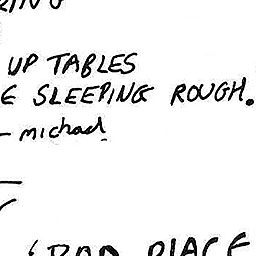 UP TABLES
E SLEEPING ROUGH.
- michael
PLACE